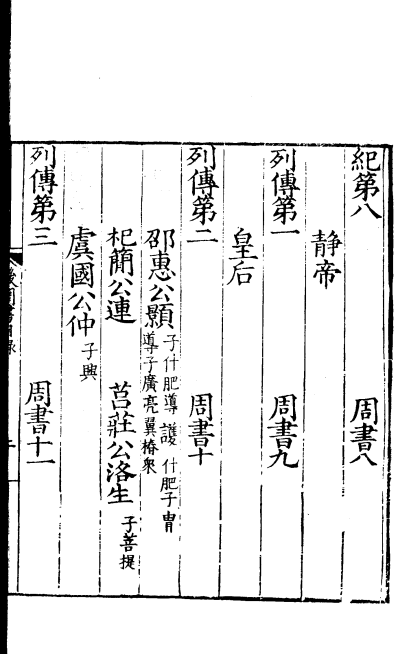 紀第八 周書八
静帝
列傳第一 周書九
皇后
列傳第二 周書十
邵惠公顥 子什肥 導 護 什肥子胄
導子廣 亮 翼 椿 衆
杞簡公連 莒莊公洛生 子菩提
虞國公仲 子興
列傳第三 周書十一